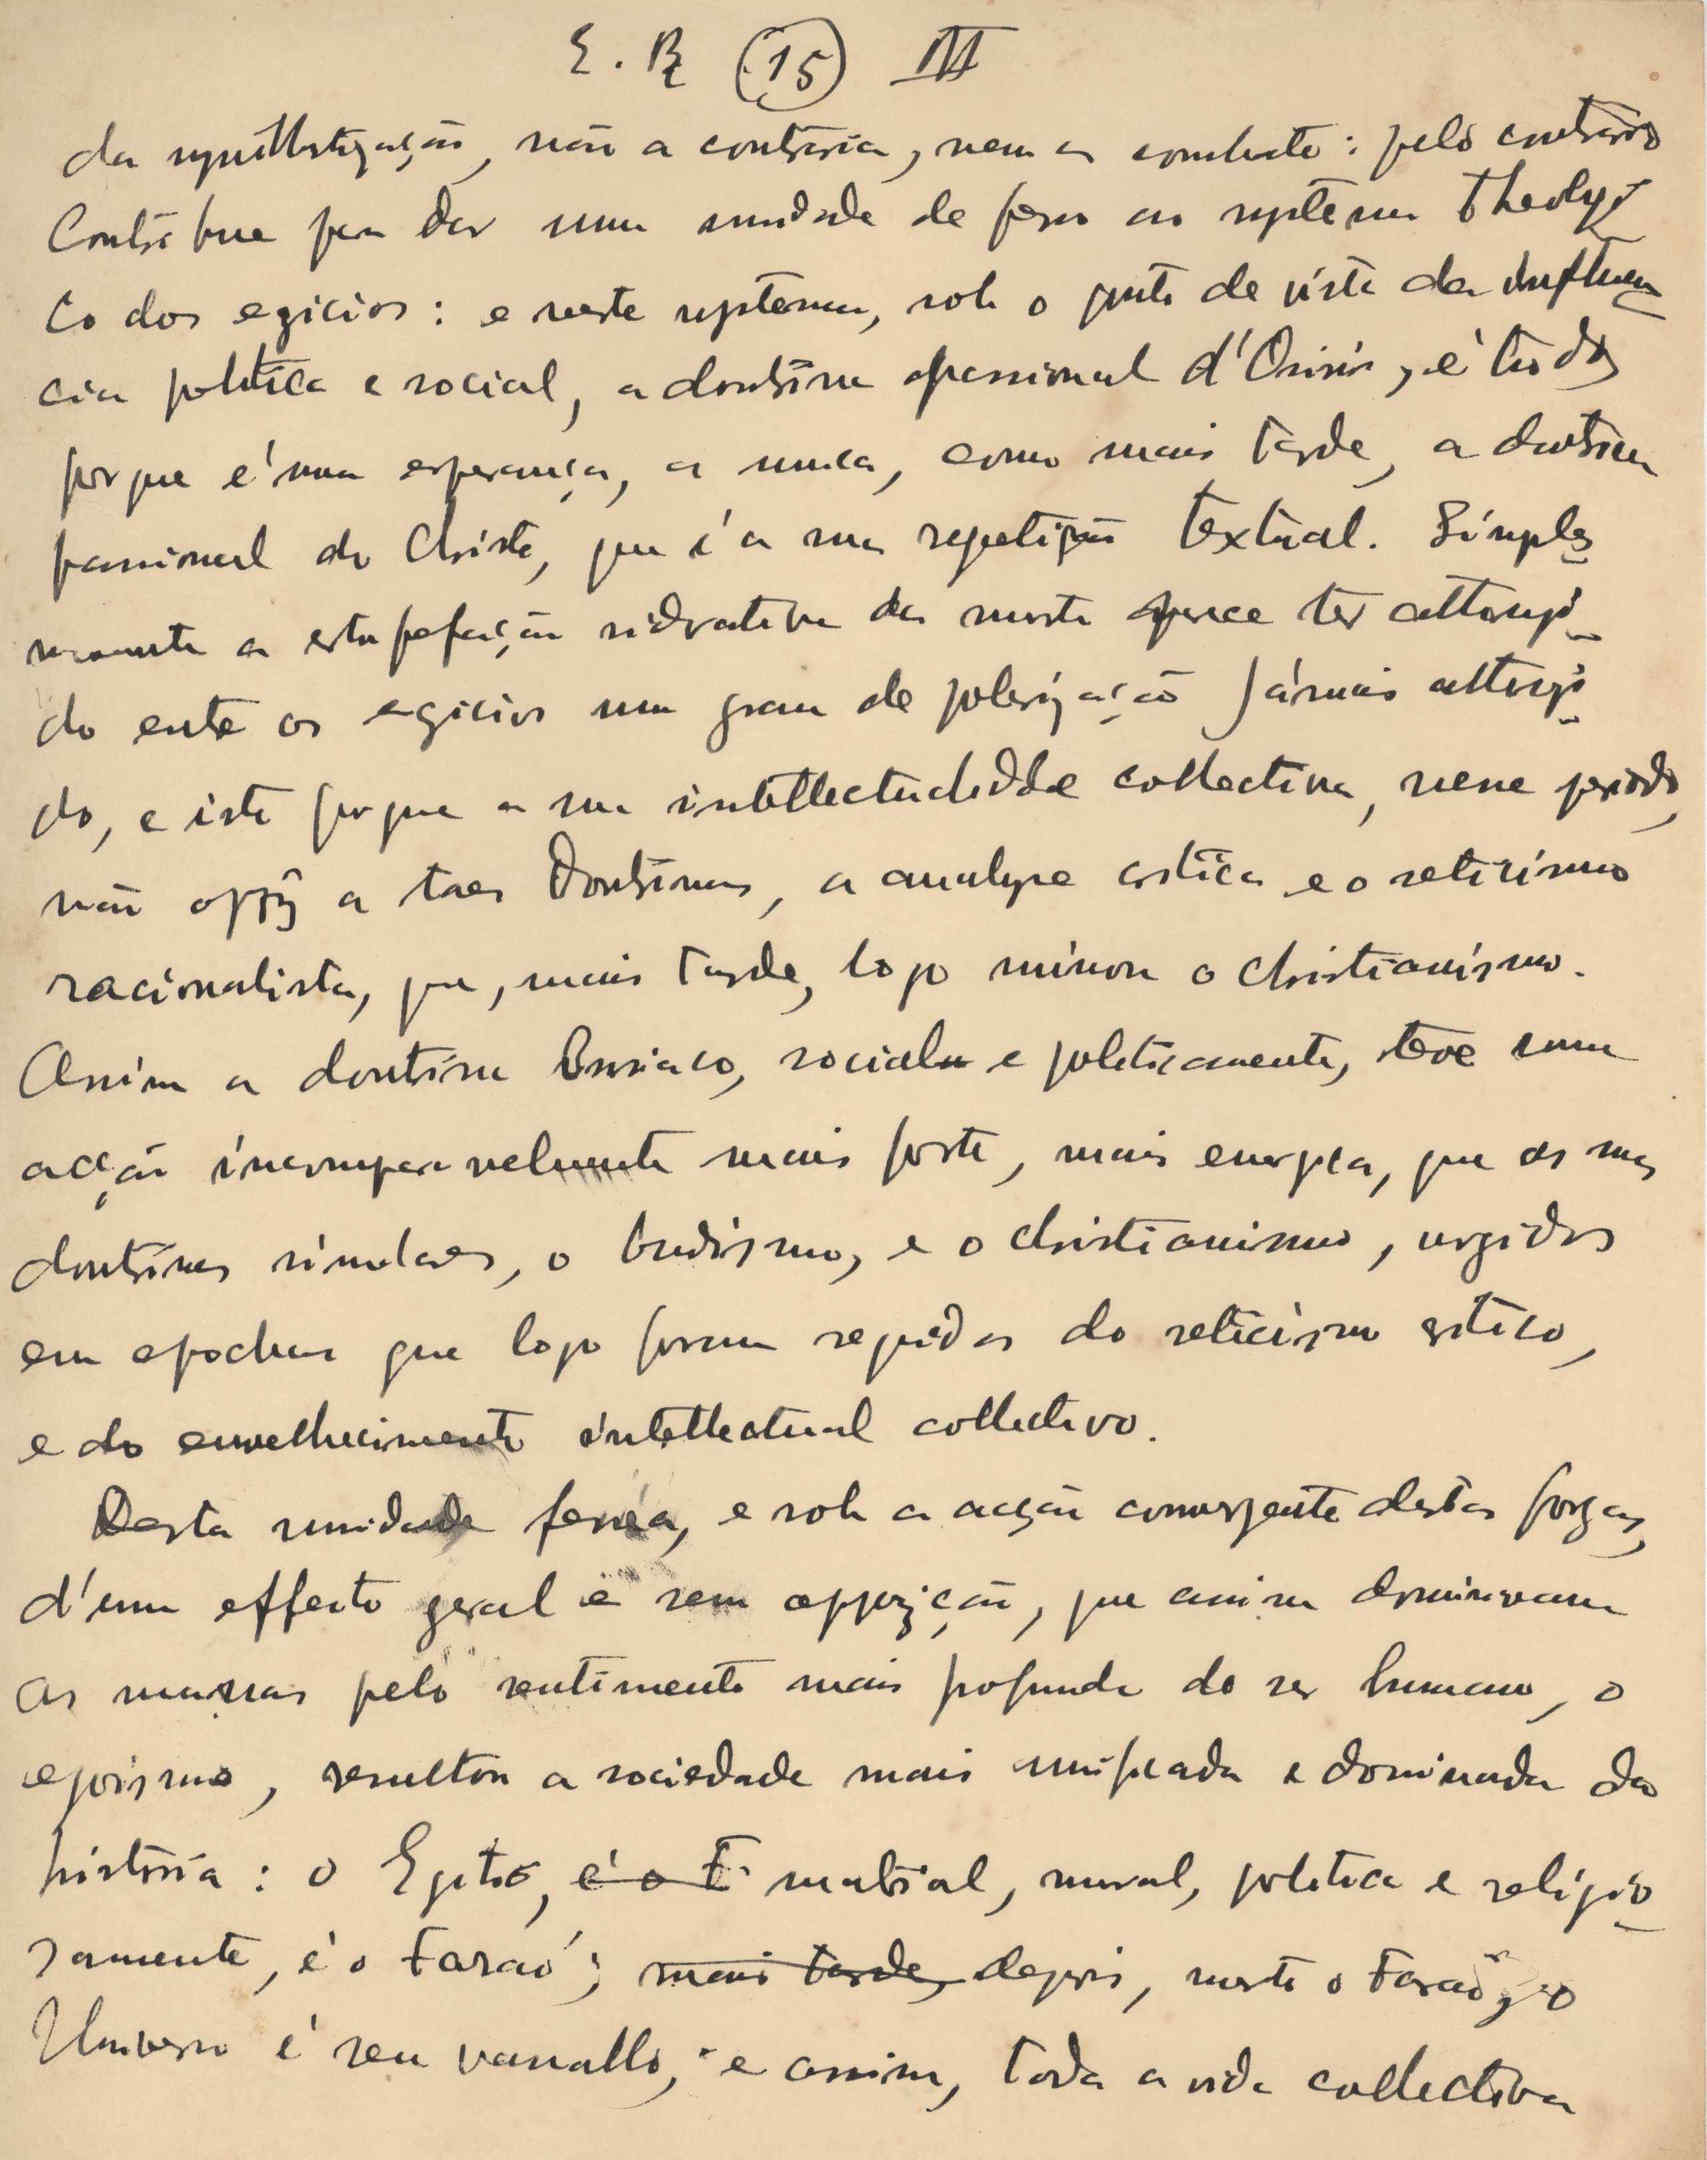 E. R (15) III
da synthetização, não a contraria, nem a combate: pelo contrario
Contribue pra dar uma unidade de ferro ao systema theologi
co dos egicios: e neste systema, sob o ponto de vista da influen
cia politica e social, a doutrina passional d'Osiris, é tudo
porque é uma esperança, a unica, como mais tarde, a doutrina
passional do Christo, que é a sua repetição textual. Simples
mente a estupefação da morte parece ter attingi
do entre os egicios um grau de polarização jámais attingi
do, e isto porque a sua intellectualidade collectiva, nesse periodo,
não oppoz a taes doutrinas, a analyse critica e o sceticismo
racionalista, que, mais tarde, logo minou o christianismo.
Assim a doutrina Osiriaca, social e politicamente, teve uma
acção incomparavelmente mais forte, mais energica, que as suas
doutrinas similares, o budismo, e o christianismo, surgidos
em epochas que logo foram seguidas do seticismo critico,
e do envelhecimento intellectual collectivo.
Desta unidade ferrea, e sob a acção convergente destas forças,
d'um effeito geral e sem oppozição, que assim dominavam
as massas pelo sentimento mais profundo do ser humano, o
egoismo, resultou a sociedade mais unificada e dominada da
historia: o Egito, é o F material, moral, politica e religio
samente, é o Faraó; mais tarde, depois, morto o Faraó, o
Universo é seu vassallo, e assim, toda a vida collectiva